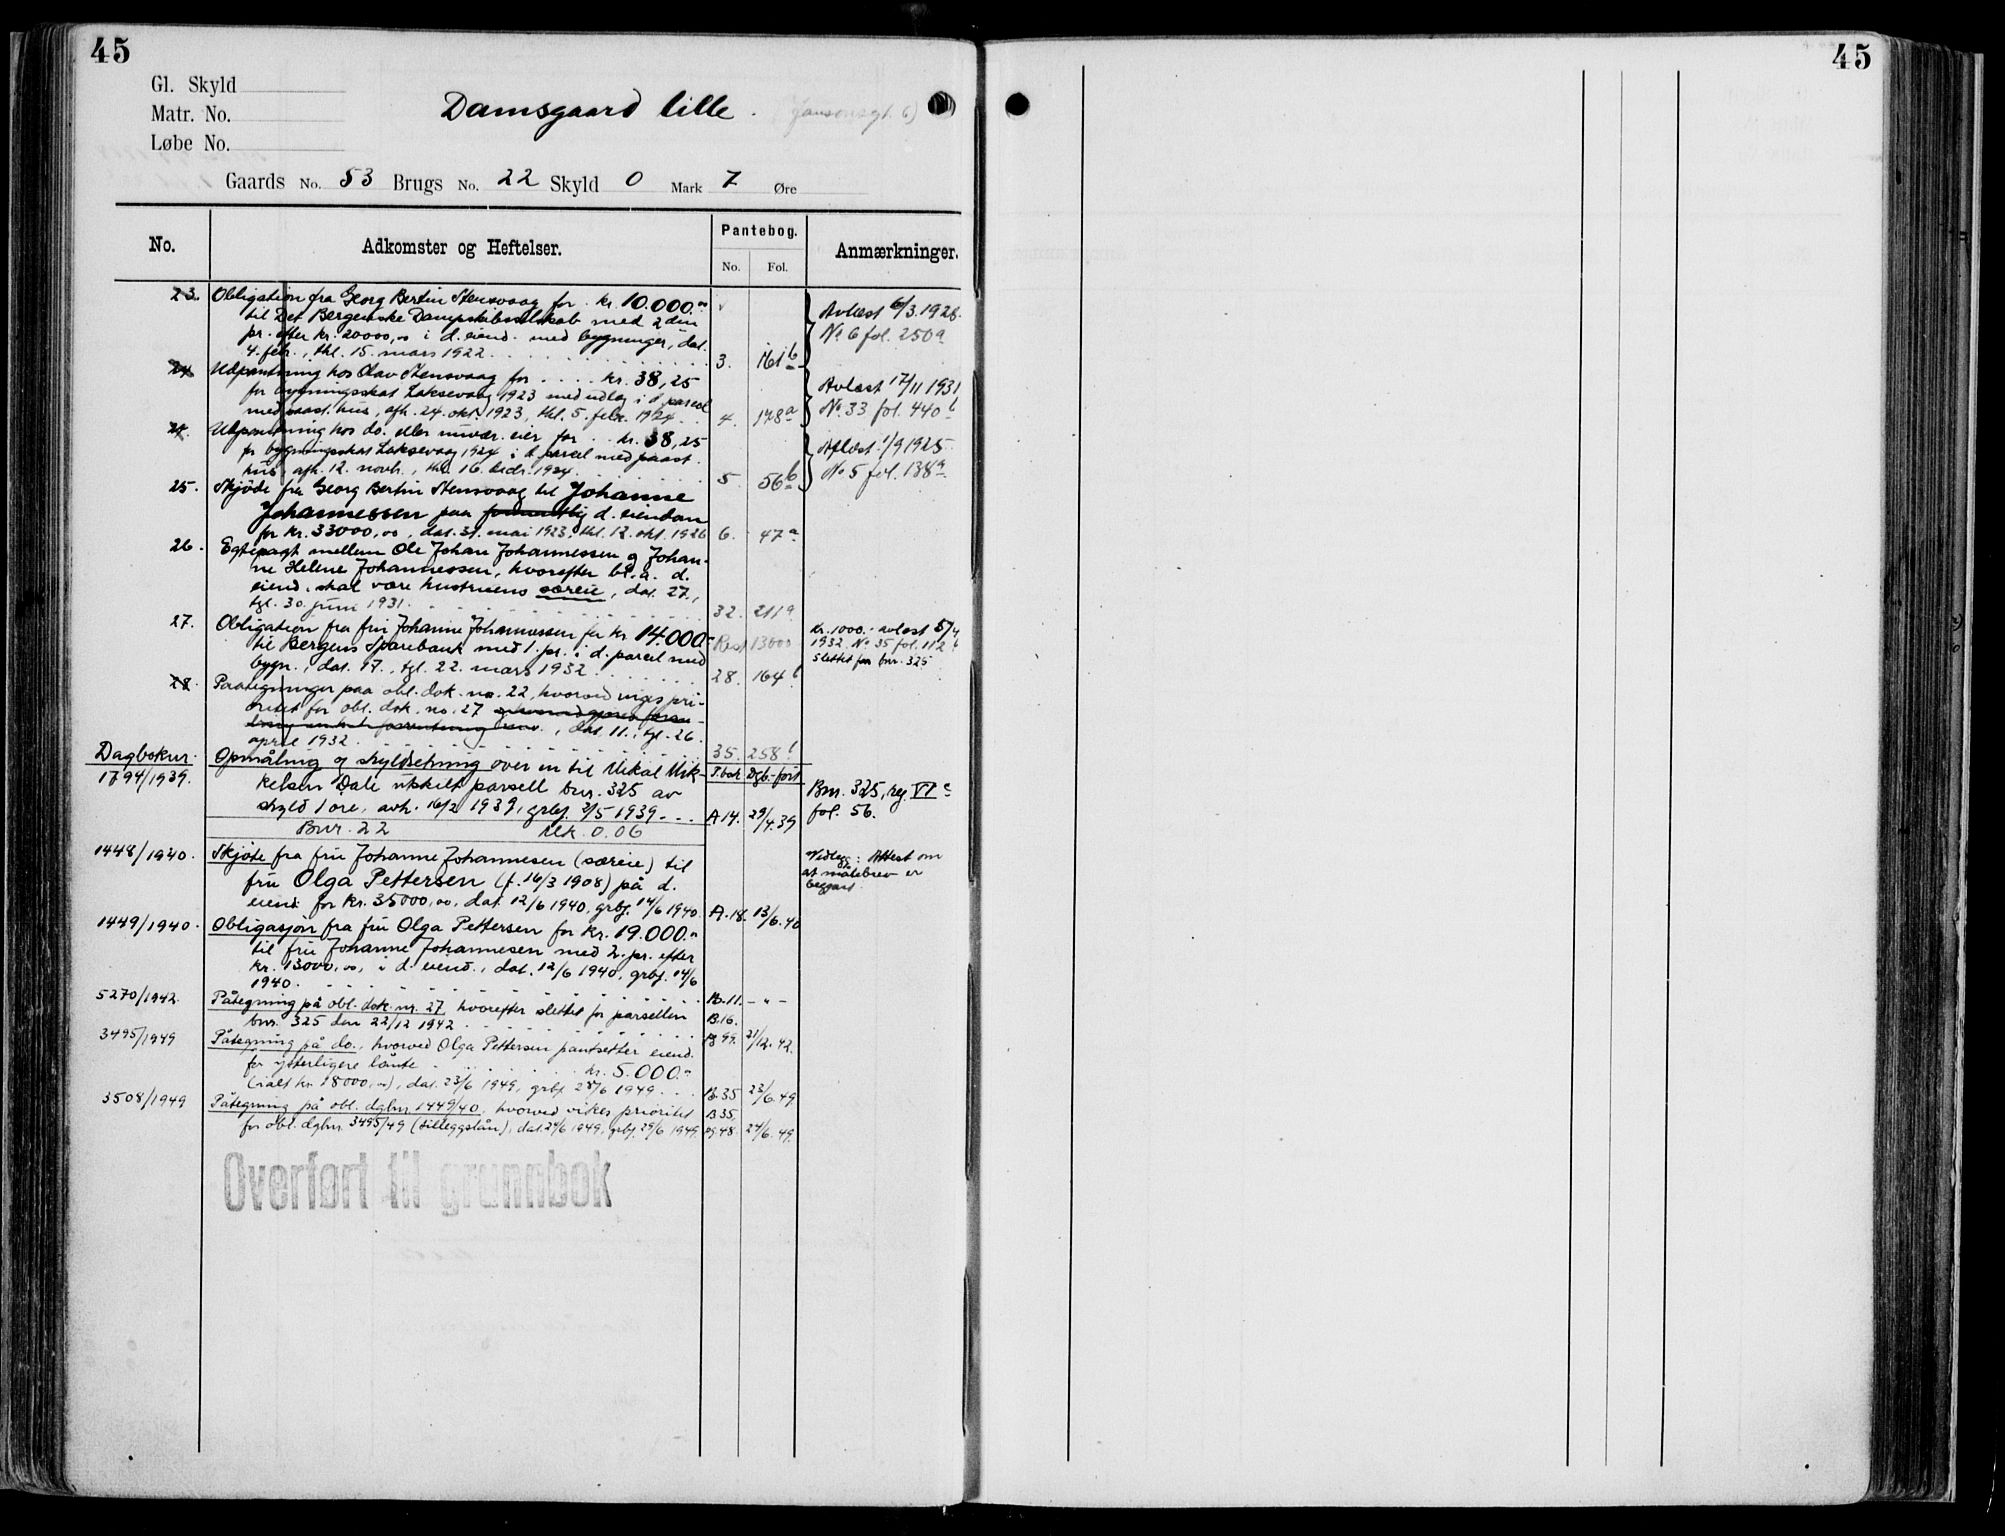 45
45
Gl. Skyld
Matr. No.
Løbe No.
Damsgaard lille. (Jansonsgt. 6)
Gaards No. 53 Brugs No. 22 Skyld 0 Mark 7 Øre
No. Adkomster og Heftelser. Pantebog. No. Fol. Anmærkninger.
23. Obligation fra Georg Bertin Stensvaag for kr. 10.000.
til Det Bergenske Dampskibsselskab med 2den
pr. efter kr. 20000,00 i d. eiend. med bygninger, dat.
4. febr., thl. 15. mars 1922. 3. 161b
Avlæst 6/3.1926.
No 6 fol. 250a
24. Udpantning hos Olav Stensvaag for kr. 38,25
for bygningsskat Laksevaag 1923 med udlæg i d. parcel
med paast. hus, afh. 24. okt. 1923, thl. 5. febr. 1924 4. 178a
Avlæst 17/11 1931
No. 33 fol. 440b
Udpantning hos do. eller nuvær. eier for kr. 38,25
for bygningsskat Laksevaag 1924 i d. parcel med paast.
hus, afh. 12. novb., thl. 16. decbr. 1924. 5 56b
Aflæst 1/9 1925
No 5 fol. 138a
25. Skjøde fra Georg Bertin Stensvaag til Johanne
Johannessen paa d. eiendom
for kr. 33000,00, dat. 31. mai 1923, thl. 12. okt. 1926 6. 47a
26. Egtepagt mellem Ole Johan Johannessen og Johan-
ne Helene Johannessen, hvorefter bl.a. d.
eiend. skal være hustruens særeie, dat. 27.,
tgl. 30. juni 1931. 32. 211a
27. Obligation fra fru Johanne Johannessen for kr. 14.000
til Bergens Sparebank med 1. pr. i d. parcel med
bygn., dat. 17., tgl. 22. mars 1932 28. 164b
Rest 13000
kr. 1000.- avlæst 5/4
1932. No 35 fol. 112b
Slettet for bnr. 325
28. Paategninger paa obl. dok. no. 22, hvorved viges pri-
oritet for obl. dok. no. 27
dat. 11., tgl. 26.
april 1932 35. 258b
Dagboknr. Opmåling og skyldsetning over en til Mikal Mik- P.bok Dgb.-ført
1794/1939. kelsen Dale utskilt parsell bnr. 325 av
skyld 1 øre, avh. 16/2 1939, grbf. 2/5 1939 A 14. 29/4.39
Bnr. 325, reg. VI c
fol. 56.
Bnr. 22 Mk. 0.06
1448/1940. Skjøte fra fru Johanne Johannesen (særeie) til
fru Olga Pettersen (f. 16/3 1908) på d.
eiend. for kr. 35000,00, dat. 12/6 1940, grbf. 14/6 1940. A. 18. 13/6.40
Vedlegg: Attest om
at målebrev er
begjært.
1449/1940. Obligasjon fra fru Olga Pettersen for kr. 19.000.
til fru Johanne Johannesen med 2. pr. efter
kr. 13000,00, i d. eiend., dat. 12/6 1940, grbf. 14/6
1940. B. 11. — " —
5270/1942. Påtegning på obl. dok. nr. 27 hvorefter slettet for parsellen B 16.
bnr. 325 den 22/12 1942 pg 99. 21/12. 42.
3495/1949 Påtegning på do., hvorved Olga Pettersen pantsetter eiend.
for ytterligere lånte kr. 5.000.
(ialt kr. 18000,00), dat. 23/6 1949, grbf. 28/6 1949 B 35 23/6. 49.
3508/1949 Påtegning på obl. dgbnr. 1449/40, hvorved vikes prioritet B 35.
for obl. dgbnr. 3495/49 (tilleggslån), dat. 24/6 1949, grbf. 29/6 1949. pg 48. 24/6. 49.
Overført til grunnbok